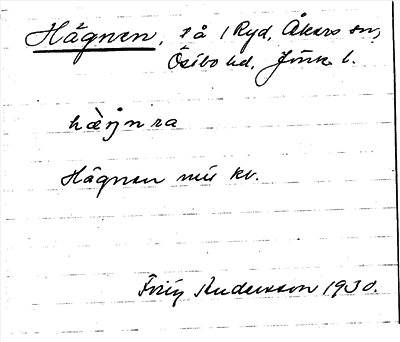 Hägnen, på 1 Ryd, Åkers sn,
Östbo hd, Jönk. l.
hæ̀ŋnra
Hägnen
kv.
Andersson 1930.